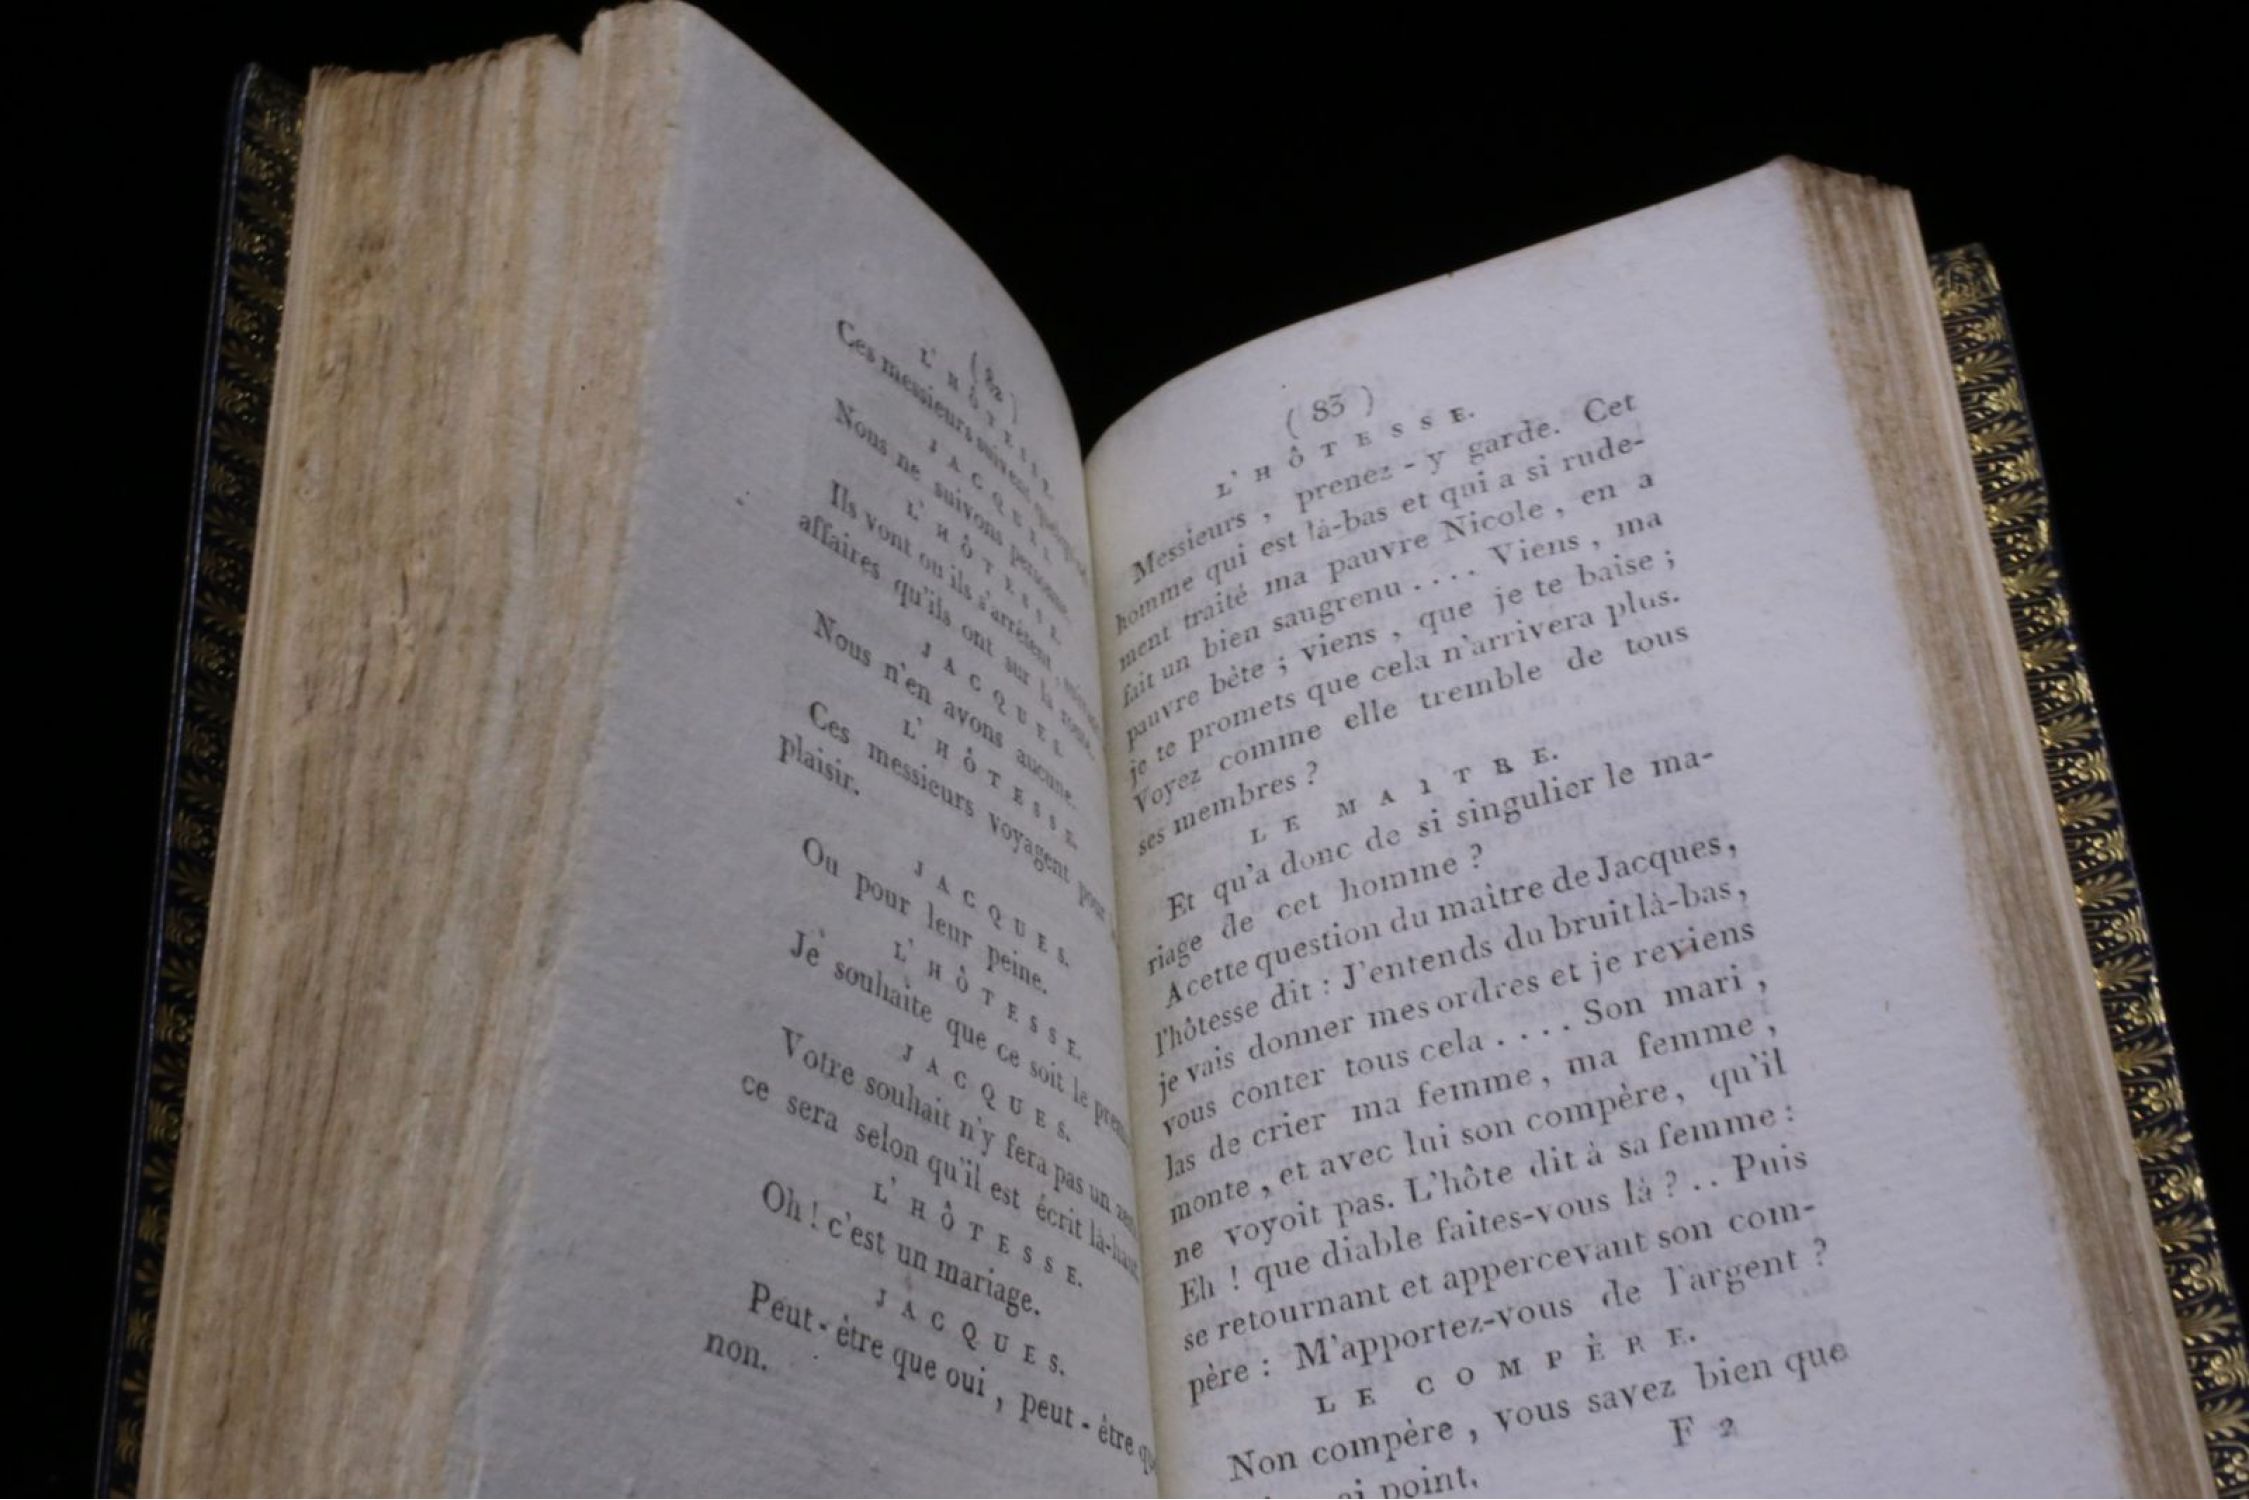 ( 82 )
L'HÔTESSE.
Ces messieurs suivent
JACQUES.
Nous ne suivons personne.
L'HÔTESSE.
Ils vont ou ils s'arrêtent,
affaires qu'ils ont sur la route.
JACQUES.
Nous n'en avons aucune.
L'HÔTESSE.
Ces messieurs voyagent pour
plaisir.
JACQUES.
Ou pour leur peine.
L'HÔTESSE.
Je souhaite que ce soit le
JACQUES.
Votre souhait n'y fera pas un
ce sera selon qu'il est écrit là-haut.
L'HÔTESSE.
Oh ! c'est un mariage.
JACQUES.
Peut-être que oui, peut-être
non.
( 83 )
L'HÔTESSE.
Messieurs, prenez-y garde. Cet
homme qui est là-bas et qui a si rude-
ment traité ma pauvre Nicole, en a
fait un bien saugrenu.... Viens, ma
pauvre bête ; viens, que je te baise ;
je te promets que cela n'arrivera plus.
Voyez comme elle tremble de tous
ses membres ?
LE MAITRE.
Et qu'a donc de si singulier le ma-
riage de cet homme ?
A cette question du maitre de Jacques,
l'hôtesse dit : J'entends du bruit là-bas,
je vais donner mes ordres et je reviens
vous conter tous cela.... Son mari,
las de crier ma femme, ma femme,
monte, et avec lui son compère, qu'il
ne voyoit pas. L'hôte dit à sa femme :
Eh ! que diable faites-vous là ?.. Puis
se retournant et appercevant son com-
père : M'apportez-vous de l'argent ?
LE COMPÈRE.
Non compère, vous savez bien que
F 2
point.